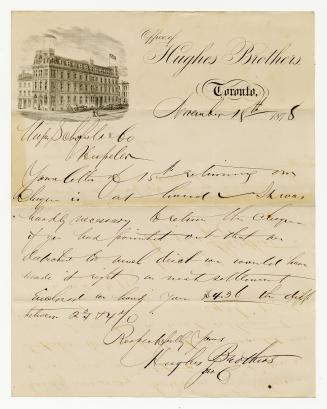 Office of
Hughes Brothers
Toronto,
November 18th 1878
& Co
Your letter of 15th returning our
is at hand It was
hardly necessary to return the
if you had pointed out that we
deducted to much disct we would have
made it right in next settlement
Enclosed we hand you $4.36 the diff
between
Respectfully Yours
Hughes Brothers